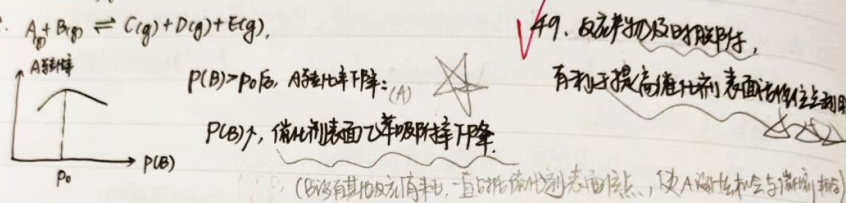 A(g)+B(g) ⇌ C(g)+D(g)+E(g),
A转化率
P(B)>P₀后, A转化率下降:(A)
P(B)↑, 催化剂表面乙苯吸附率下降.
P₀
P(B)
(B没有其他反应消耗, 一直占据催化剂表面位点, 使A没法机会与催化剂
49. 反应产物及时脱附,
有利于提高催化剂表面活性位点